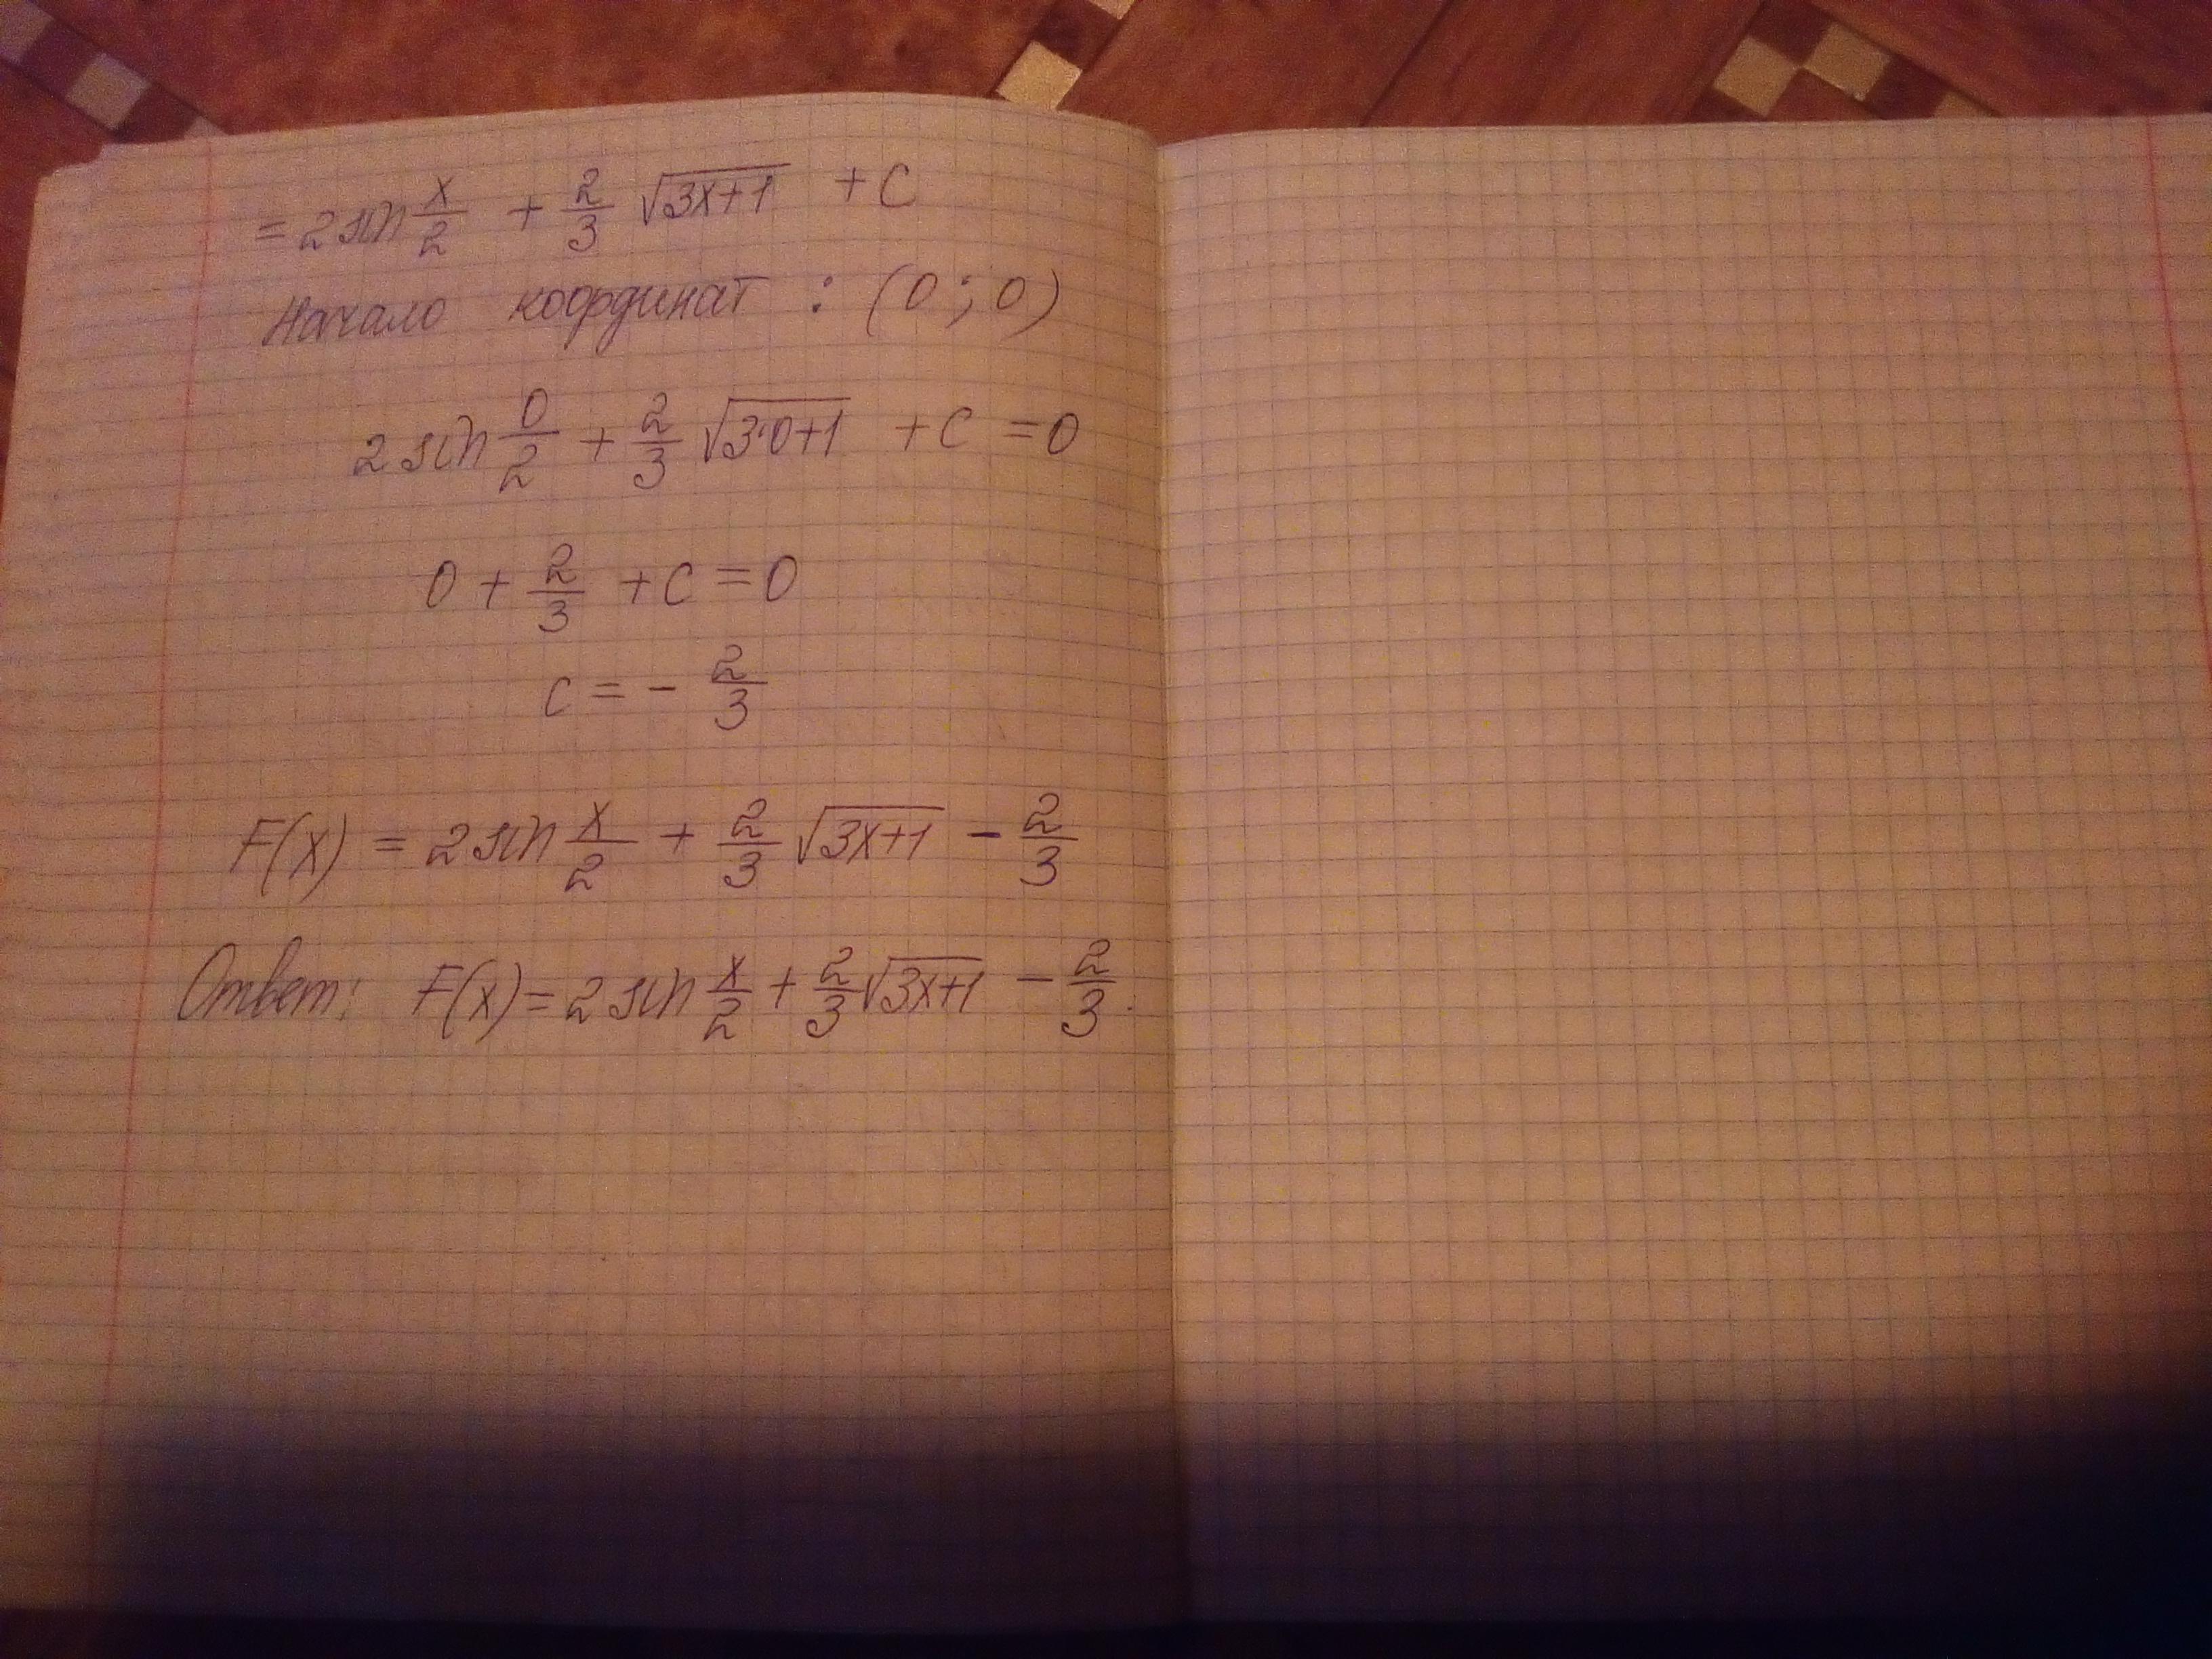 = 2 sin x/2 + 2/3 √(3x+1) + C
Начало координат : (0 ; 0)
2 sin 0/2 + 2/3 √(3·0+1) + C = 0
0 + 2/3 + C = 0
C = - 2/3
F(x) = 2 sin x/2 + 2/3 √(3x+1) - 2/3
Ответ: F(x) = 2 sin x/2 + 2/3 √(3x+1) - 2/3.